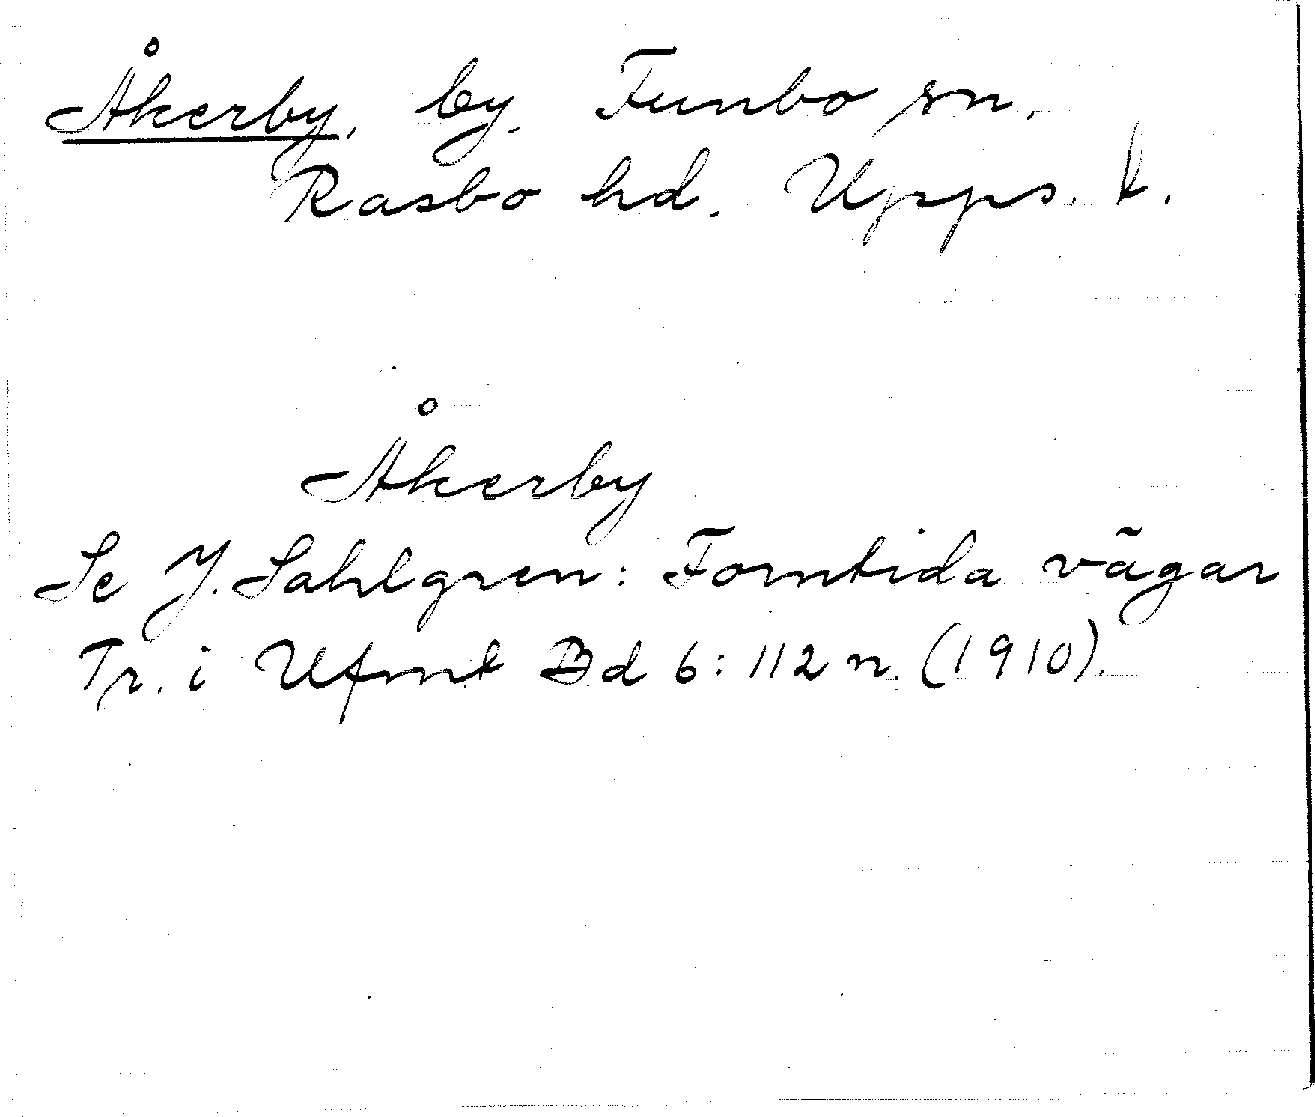 Åkerby, by, Funbo sn,
Rasbo hd. Upps. l.
Åkerby
Se J. Sahlgren: Forntida vägar
Tr. i Ufmt Bd 6: 112 n. (1910).